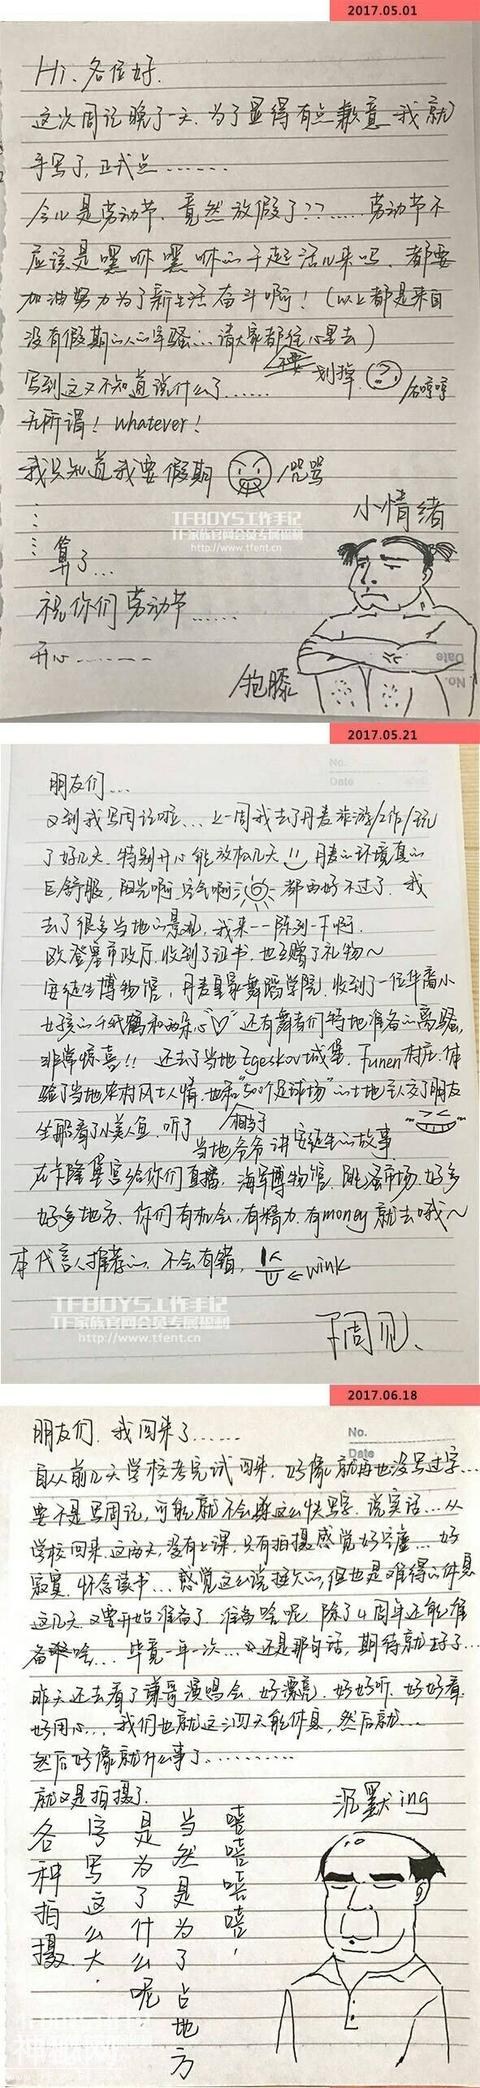 2017.05.01
Hi、各位好.
这次周记晚了一天.为了显得有点歉意.我就
手写了,正式点……
今儿是劳动节.竟然放假了??……劳动节不
应该是嘿咻嘿咻的干起活儿来吗.都要
加油努力为了新生活奋斗啊!(以上都是来自
没有假期的人的牢骚…请大家都往心里去)
不要 划掉.
写到这又不知道说什么了……
/气哼哼
无所谓!whatever!
我只知道我要假期
/咒骂
小情绪
算了…
祝你们劳动节……
开心……
/抱膝
TFBOYS工作手记
TF家族官网会员专属福利
http://www.tfent.cn
Date
No.
2017.05.21
No.
Date
朋友们…
又到我写周记啦…上一周我去了丹麦旅游/工作/玩
了好几天.特别开心能放松几天
丹麦的环境真的
巨舒服,阳光啊.空气啊
都好不过了.我
去了很多当地的景观,我来一一陈列一下啊.
欧登塞市政厅.收到了证书.也回赠了礼物~
安徒生博物馆,丹麦皇家舞蹈学院.收到了一位华裔小
女孩的千纸鹤和两颗心
还有舞者们特地准备的高骚,
非常惊喜!!还去了当地Egeskov城堡.Funen村庄.体
验了当地农村风土人情.也和“50个足球场”的土地主人交了朋友
/相当于
坐那看了小美人鱼.听了
当地爷爷讲安徒生的故事.
在卡隆堡宫给你们直播.海军博物馆.跳蚤市场.好多
好多地方.你们有机会,有精力.有money就去哦~
本代言人推荐的.不会有错.
←wink
下周见、
TFBOYS工作手记
TF家族官网会员专属福利
http://www.tfent.cn
2017.06.18
No.
Date
朋友们.我回来了……
自从前几天学校考完试回来.好像就再也没写过字…
要不是写周记,可能就不会这么快写字.说实话…从
学校回来这两天,没有上课,只有拍摄感觉好空虚…好
寂寞.怀念读书…感觉这么说挺欠的,但也是难得的休息
这几天.又要开始准备了.准备啥呢.除了4周年还能准
备啥…毕竟一年一次…还是那句话,期待就好了…
昨天还去看了谦哥演唱会.好漂亮.好好听.好好看.
好用心…我们也就这三四天能休息,然后就…
然后好像就什么事了…………
就又是拍摄了.
沉默ing
嘻嘻嘻嘻,
当然是为了占地方
是为了什么呢
字写这么大,
各种拍摄.